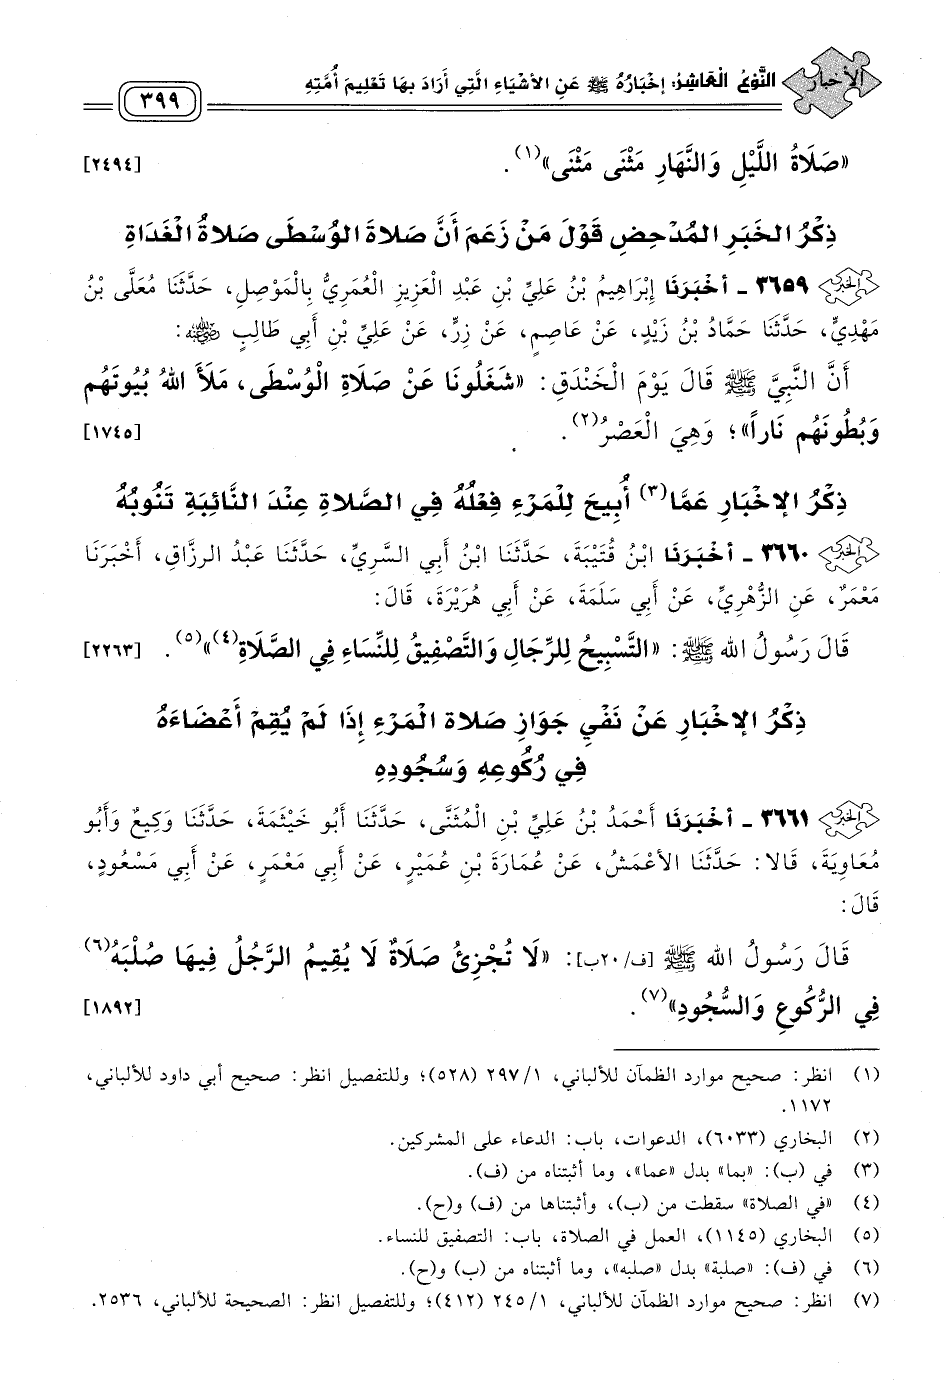 الأخبار النَّوْعُ الْعَاشِرُ: إِخْبَارُهُ ﷺ عَنِ الأَشْيَاءِ الَّتِي أَرَادَ بِهَا تَعْلِيمَ أُمَّتِهِ
٣٩٩
«صَلَاةُ اللَّيْلِ وَالنَّهَارِ مَثْنَى مَثْنَى»(١). [٢٤٩٤]
ذِكْرُ الخَبَرِ المُدْحِضِ قَوْلَ مَنْ زَعَمَ أَنَّ صَلاةَ الوُسْطَى صَلاةُ الغَدَاةِ
٣٦٥٩ - أخْبَرَنَا إِبْرَاهِيمُ بْنُ عَلِيِّ بْنِ عَبْدِ العَزِيزِ العُمَرِيُّ بِالْمَوْصِلِ، حَدَّثَنَا مُعَلَّى بْنُ
مَهْدِيٍّ، حَدَّثَنَا حَمَّادُ بْنُ زَيْدٍ، عَنْ عَاصِمٍ، عَنْ زِرٍّ، عَنْ عَلِيِّ بْنِ أَبِي طَالِبٍ رضي الله عنه:
أَنَّ النَّبِيَّ ﷺ قَالَ يَوْمَ الْخَنْدَقِ: «شَغَلُونَا عَنْ صَلَاةِ الْوُسْطَى، مَلَأَ اللهُ بُيُوتَهُمْ
وَبُطُونَهُم نَاراً»؛ وَهِيَ الْعَصْرُ(٢). [١٧٤٥]
ذِكْرُ الإخْبَارِ عَمَّا(٣) أُبِيحَ لِلْمَرْءِ فِعْلُهُ فِي الصَّلاةِ عِنْدَ النَّائِبَةِ تَنُوبُهُ
٣٦٦٠ - أخْبَرَنَا ابْنُ قُتَيْبَةَ، حَدَّثَنَا ابْنُ أَبِي السَّرِيِّ، حَدَّثَنَا عَبْدُ الرزَّاقِ، أَخْبَرَنَا
مَعْمَرٌ، عَنِ الزُّهْرِيِّ، عَنْ أَبِي سَلَمَةَ، عَنْ أَبِي هُرَيْرَةَ، قَالَ:
قَالَ رَسُولُ الله ﷺ: «التَّسْبِيحُ لِلرِّجَالِ وَالتَّصْفِيقُ لِلنِّسَاءِ فِي الصَّلَاةِ(٤)»(٥). [٢٢٦٣]
ذِكْرُ الإخْبَارِ عَنْ نَفْيِ جَوَازِ صَلاة المَرْءِ إِذَا لَمْ يُقِمْ أَعْضَاءَهُ
فِي رُكُوعِهِ وَسُجُودِهِ
٣٦٦١ - أخْبَرَنَا أَحْمَدُ بْنُ عَلِيِّ بْنِ الْمُثَنَّى، حَدَّثَنَا أَبُو خَيْثَمَةَ، حَدَّثَنَا وَكِيعٌ وَأَبُو
مُعَاوِيَةَ، قَالا: حَدَّثَنَا الأَعْمَشُ، عَنْ عُمَارَةَ بْنِ عُمَيْرٍ، عَنْ أَبِي مَعْمَرٍ، عَنْ أَبِي مَسْعُودٍ،
قَالَ:
قَالَ رَسُولُ الله ﷺ [ف/٢٠ب]: «لَا تُجْزِئُ صَلَاةٌ لَا يُقِيمُ الرَّجُلُ فِيهَا صُلْبَهُ(٦)
فِي الرُّكُوعِ وَالسُّجُودِ»(٧). [١٨٩٢]
(١) انظر: صحيح موارد الظمآن للألباني، ٢٩٧/١ (٥٢٨)؛ وللتفصيل انظر: صحيح أبي داود للألباني،
١١٧٢.
(٢) البخاري (٦٠٣٣)، الدعوات، باب: الدعاء على المشركين.
(٣) في (ب): «بما» بدل «عما»، وما أثبتناه من (ف).
(٤) «في الصلاة» سقطت من (ب)، وأثبتناها من (ف) و(ح).
(٥) البخاري (١١٤٥)، العمل في الصلاة، باب: التصفيق للنساء.
(٦) في (ف): «صلبة» بدل «صلبه»، وما أثبتناه من (ب) و(ح).
(٧) انظر: صحيح موارد الظمآن للألباني، ٢٤٥/١ (٤١٢)؛ وللتفصيل انظر: الصحيحة للألباني، ٢٥٣٦.